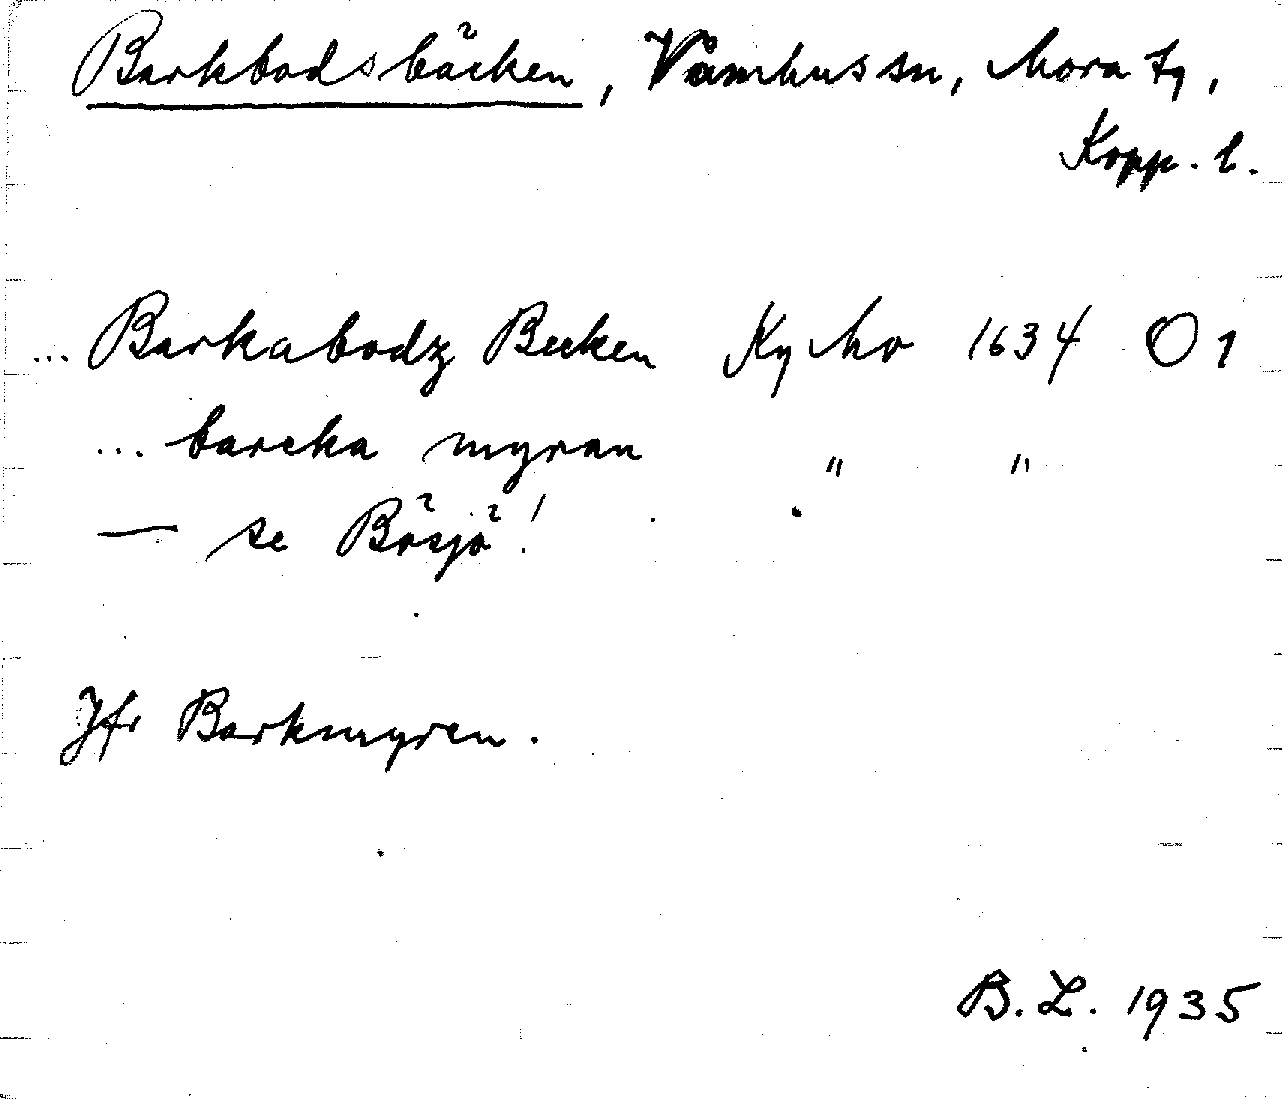 Barkbodsbäcken, Våmhus sn, Mora tg,
Kopp. l.
... Barkabodz Becken Ky Mo 1634 O 1
... barcka myran " "
— se Bösjö!
Jfr Barkmyren.
B. L. 1935